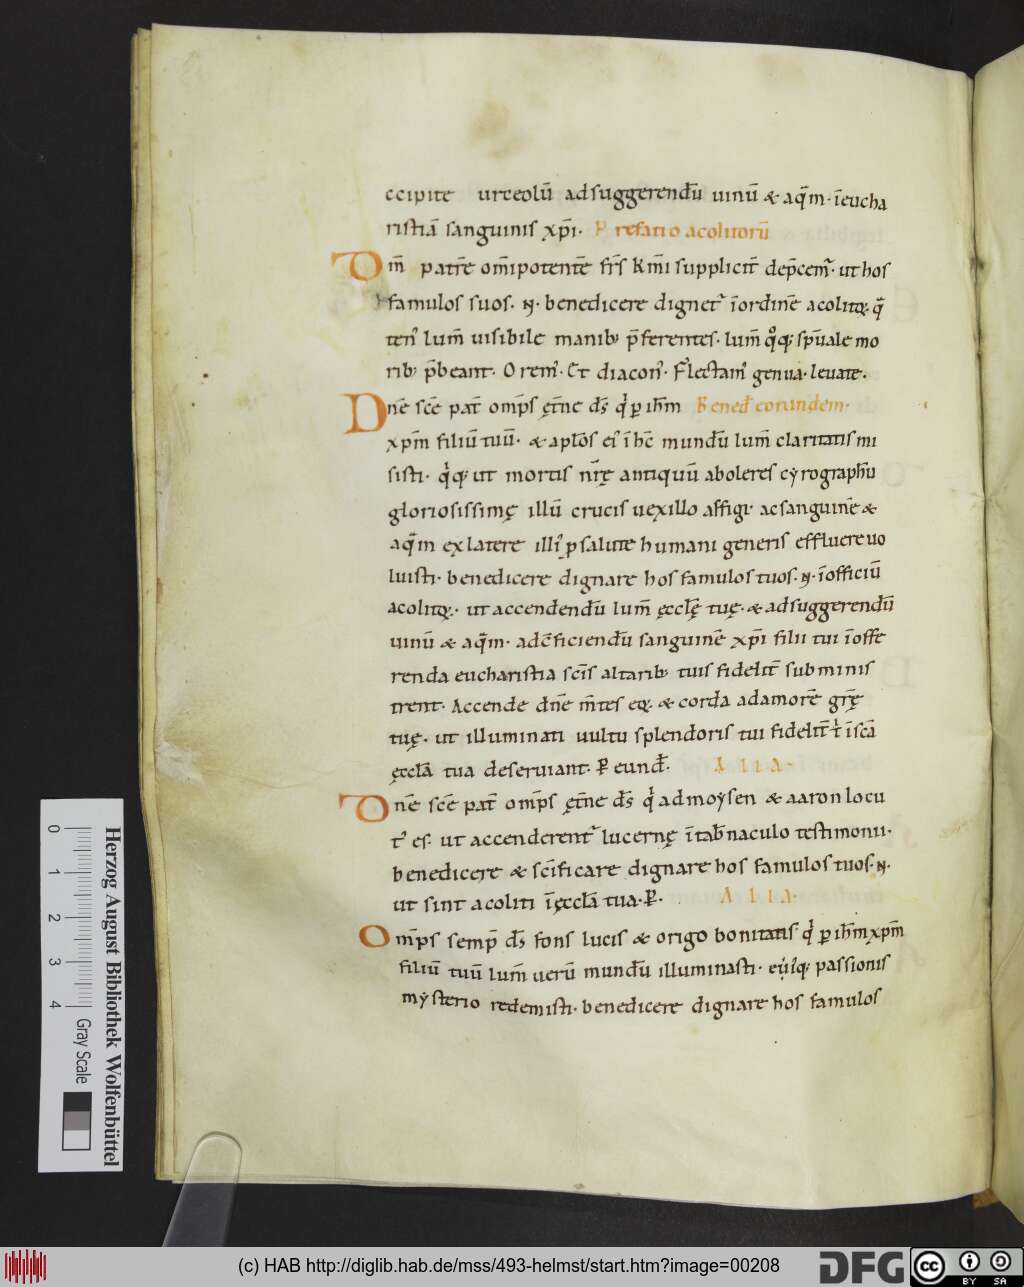 ccipite urceolū adsuggerendū uinū & aq̄m· īeucha
ristiā sanguinis xp̄i· Prefatio acolitorū
Dm̄ patrē om̄ipotentē fr̄s km̄i supplicit̄ dep̄cem᷑· ut hos
famulos suos· N· benedicere dignet᷑ īordinē acolitoꝝ· q̄
ten᷒ lum̄ uisibile manib; p̄ferentes· lum̄ qͦq; sp̄uale mo
rib; p̄beant· Orem᷒· Et diacon᷒· Flectam᷒ genua· leuate·
Dn̄e sc̄e pat̄ omp̄s ęt̄ne ds̄ qͥ ꝑ ih̄m Bened̄ eorundem·
xp̄m filiū tuū· & aplōs ei᷒ ī hc̄ mundū lum̄ claritatis mi
sisti· qͥq; ut mortis nr̄ę antiquū aboleres cẏrographū
gloriosissimę illū crucis uexillo affigi· ac sanguinē &
aq̄m ex latere illi᷒ ꝓ salute humani generis effluere uo
luisti· benedicere dignare hos famulos tuos· N· īofficiū
acolitoꝝ· ut accendendū lum̄ ęcclę̄ tuę· & adsuggerendū
uinū & aq̄m· adc̄ficiendū sanguinē xp̄i filii tui īoffe
renda eucharistia sc̄is altarib; tuis fidelit̄ subminis
trent· Accende dn̄e m̄tes eoꝝ· & corda ad amorē gr̄ę
tuę· ut illuminati uultu splendoris tui fidelit̄ tͥ īsc̄a
ęccl̄a tua deseruiant· P eund̄· ALIA·
Dn̄e sc̄e pat̄ omp̄s ęt̄ne ds̄ qͥ ad moẏsen & aaron locu
t᷒ es· ut accenderent᷑ lucernę ītab̄naculo testimonii·
benedicere & sc̄ificare dignare hos famulos tuos· N·
ut sint acoliti īęccl̄a tua· P· ALIA·
Omp̄s semp̄ ds̄ fons lucis & origo bonitatis qͥ ꝑ ih̄m xp̄m
filiū tuū lum̄ uerū mundū illuminasti· ei᷒q; passionis
mẏsterio redemisti· benedicere dignare hos famulos
Herzog August Bibliothek Wolfenbüttel
0 1 2 3 4 Gray Scale
(c) HAB http://diglib.hab.de/mss/493-helmst/start.htm?image=00208
DFG
cc BY SA